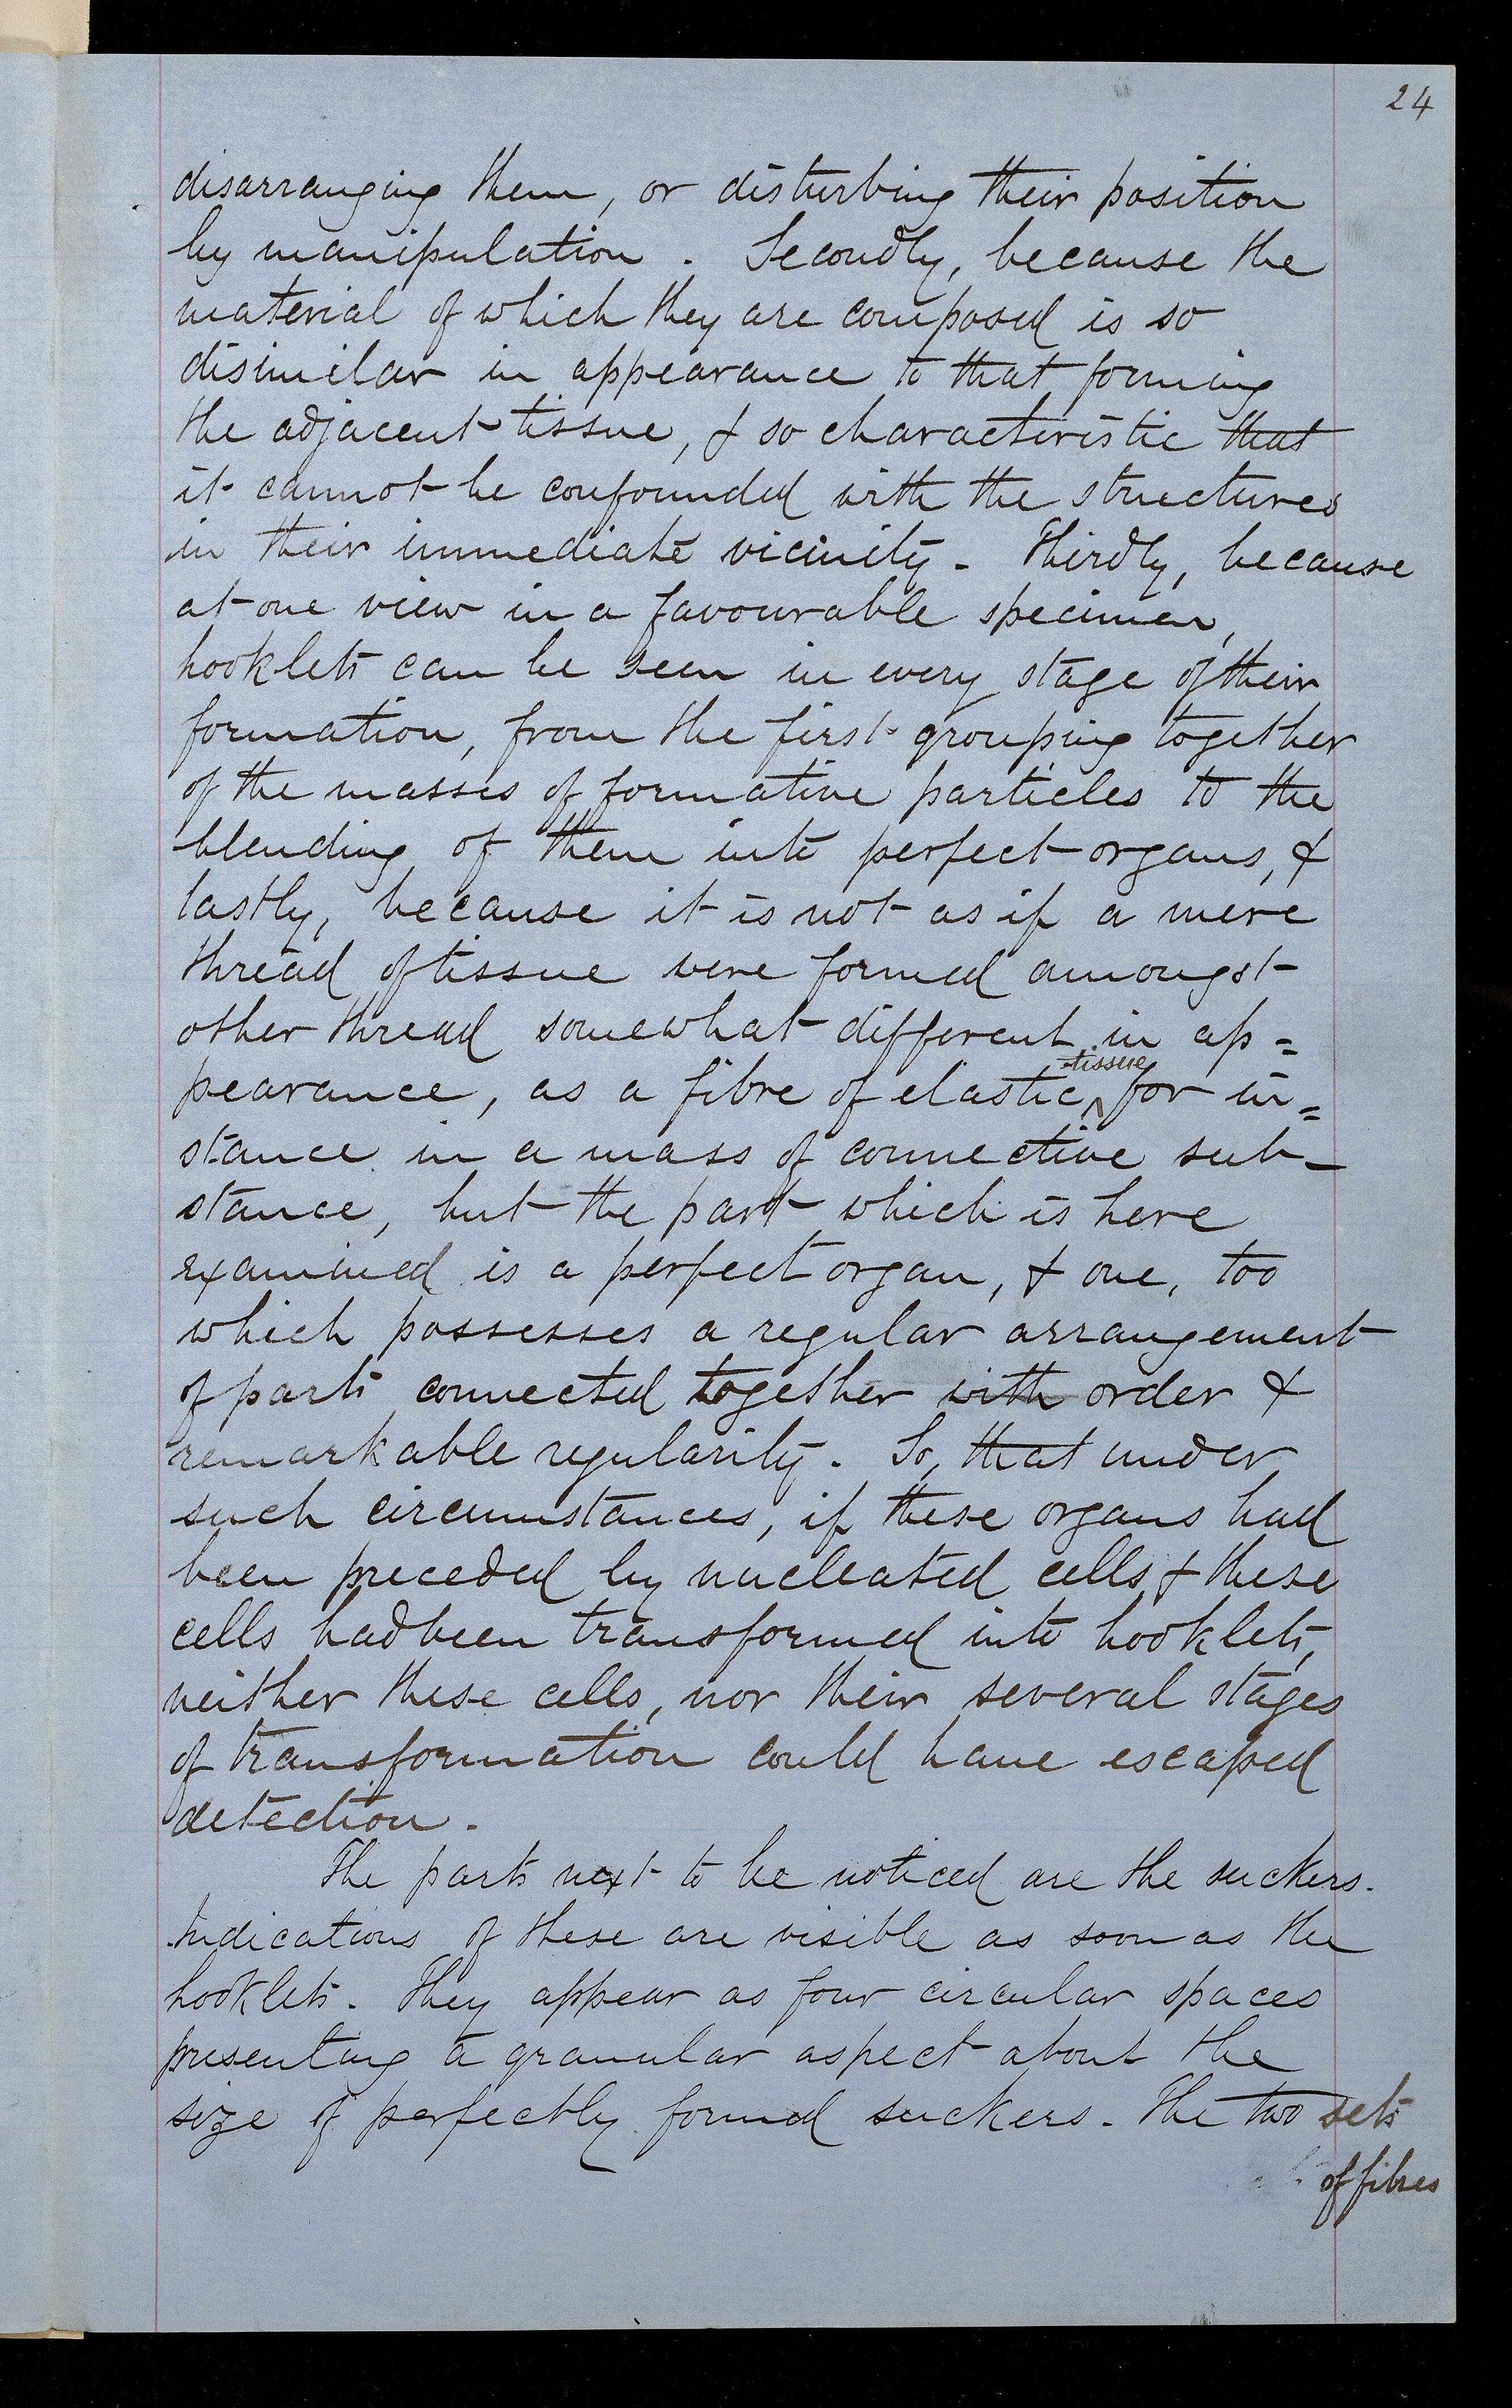 24
disarranging them, or disturbing their position
by manipulation. Secondly, because the
material of which they are composed is so
disimilar in appearance to that forming
the adjacent tissue, & so characteristic that
it cannot be confounded with the structures
in their immediate vicinity. Thirdly, because
at one view in a favourable specimen,
hooklets can be seen in every stage of their
formation, from the first grouping together
of the masses of formative particles to the
blending of them into perfect organs, &
lastly, because it is not as if a mere
thread of tissue were formed amongst
other thread somewhat different in ap=
tissue
pearance, as a fibre of elastic ^ for in=
stance in a mass of connective sub-
stance, but the part which is here
examined is a perfect organ, & one, too
which possesses a regular arrangement
of parts connected together with order &
remarkable regularity. So, that under
such circumstances, if these organs had
been preceded by nucleated cells & these
cells had been transformed into hooklets,
neither these cells, nor their several stages
of transformation could have escaped
detection.
The parts next to be noticed are the suckers.
Indications of these are visible as soon as the
hooklets. They appear as four circular spaces
presenting a granular aspect about the
size of perfectly formed suckers. The two sets
of fibres